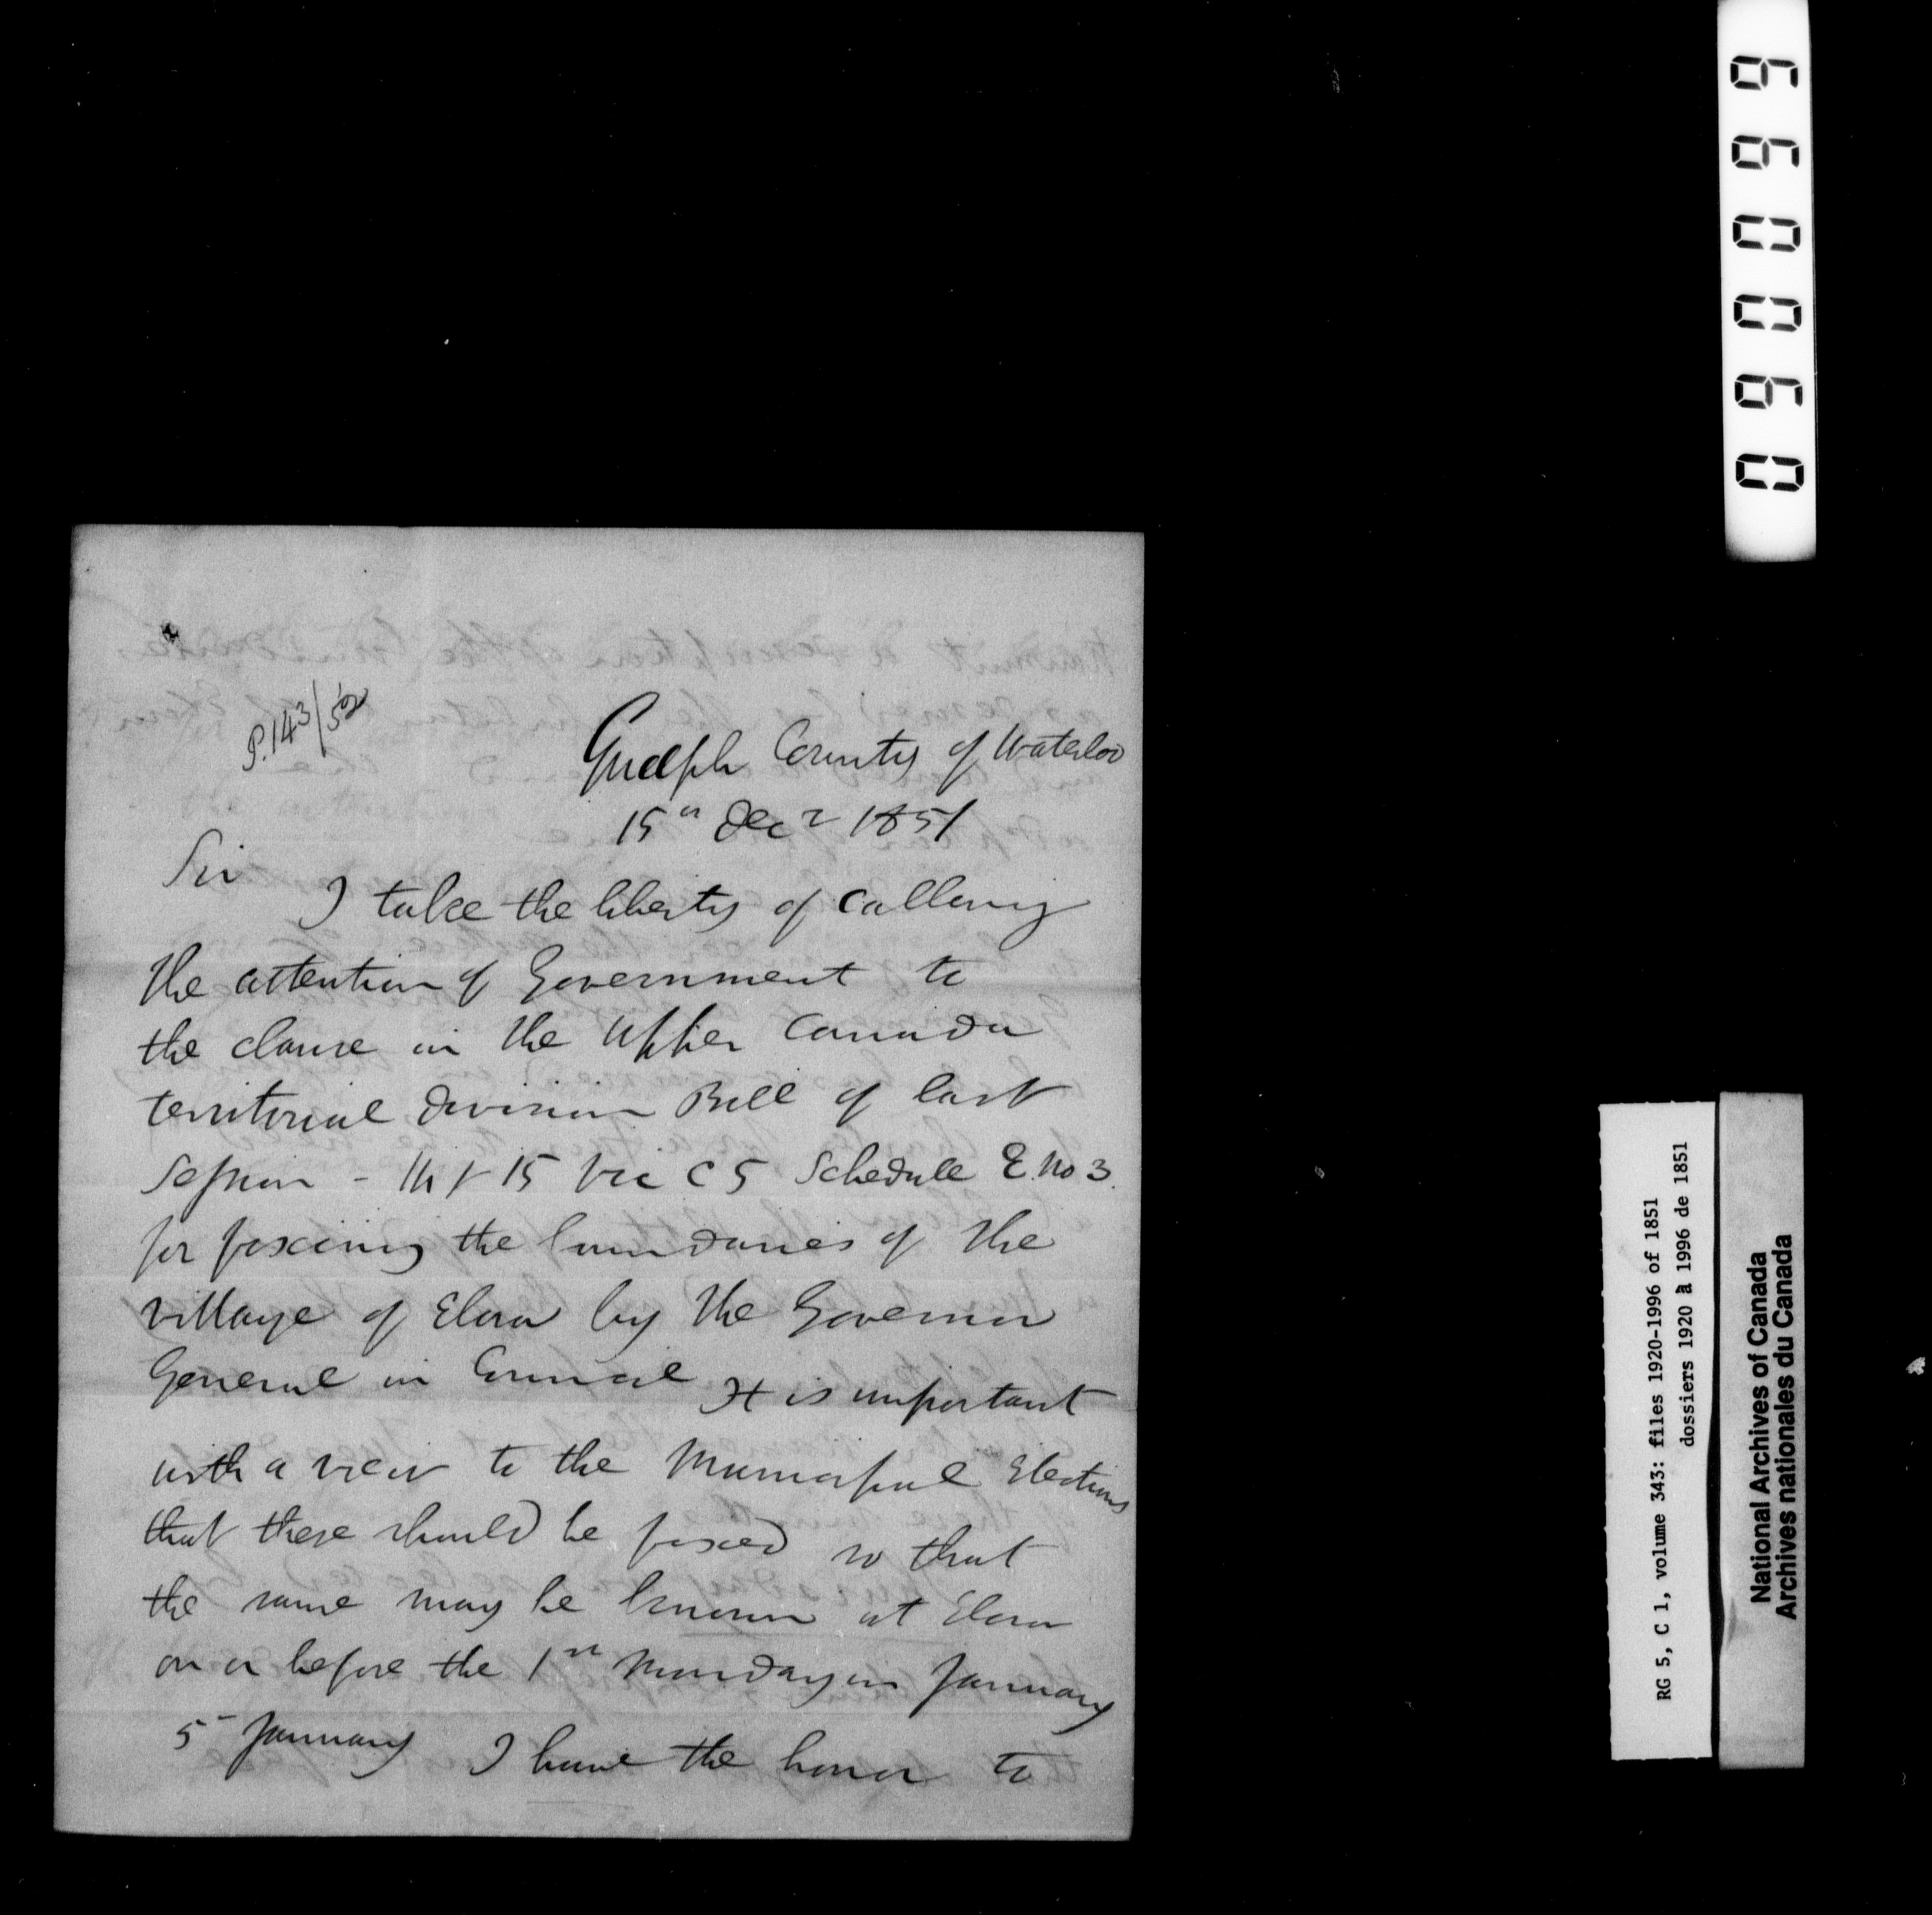 P.143/52
Guelph County of Waterloo
15th Decr 1851
Sir
I take the liberty of calling
the attention of Government to
the clause in the Upper Canada
territorial division Bill of last
Session - 14 & 15 Vic C 5 Schedule E. No 3.
for fixing the boundaries of the
village of Elora by the Governor
General in Council It is important
with a view to the Municipal Elections
that these should be fixed so that
the same may be known at Elora
on or before the 1st Monday in January
5th January I have the honor to
660090
RG 5, C 1, volume 343: files 1920-1996 of 1851
dossiers 1920 à 1996 de 1851
National Archives of Canada
Archives nationales du Canada